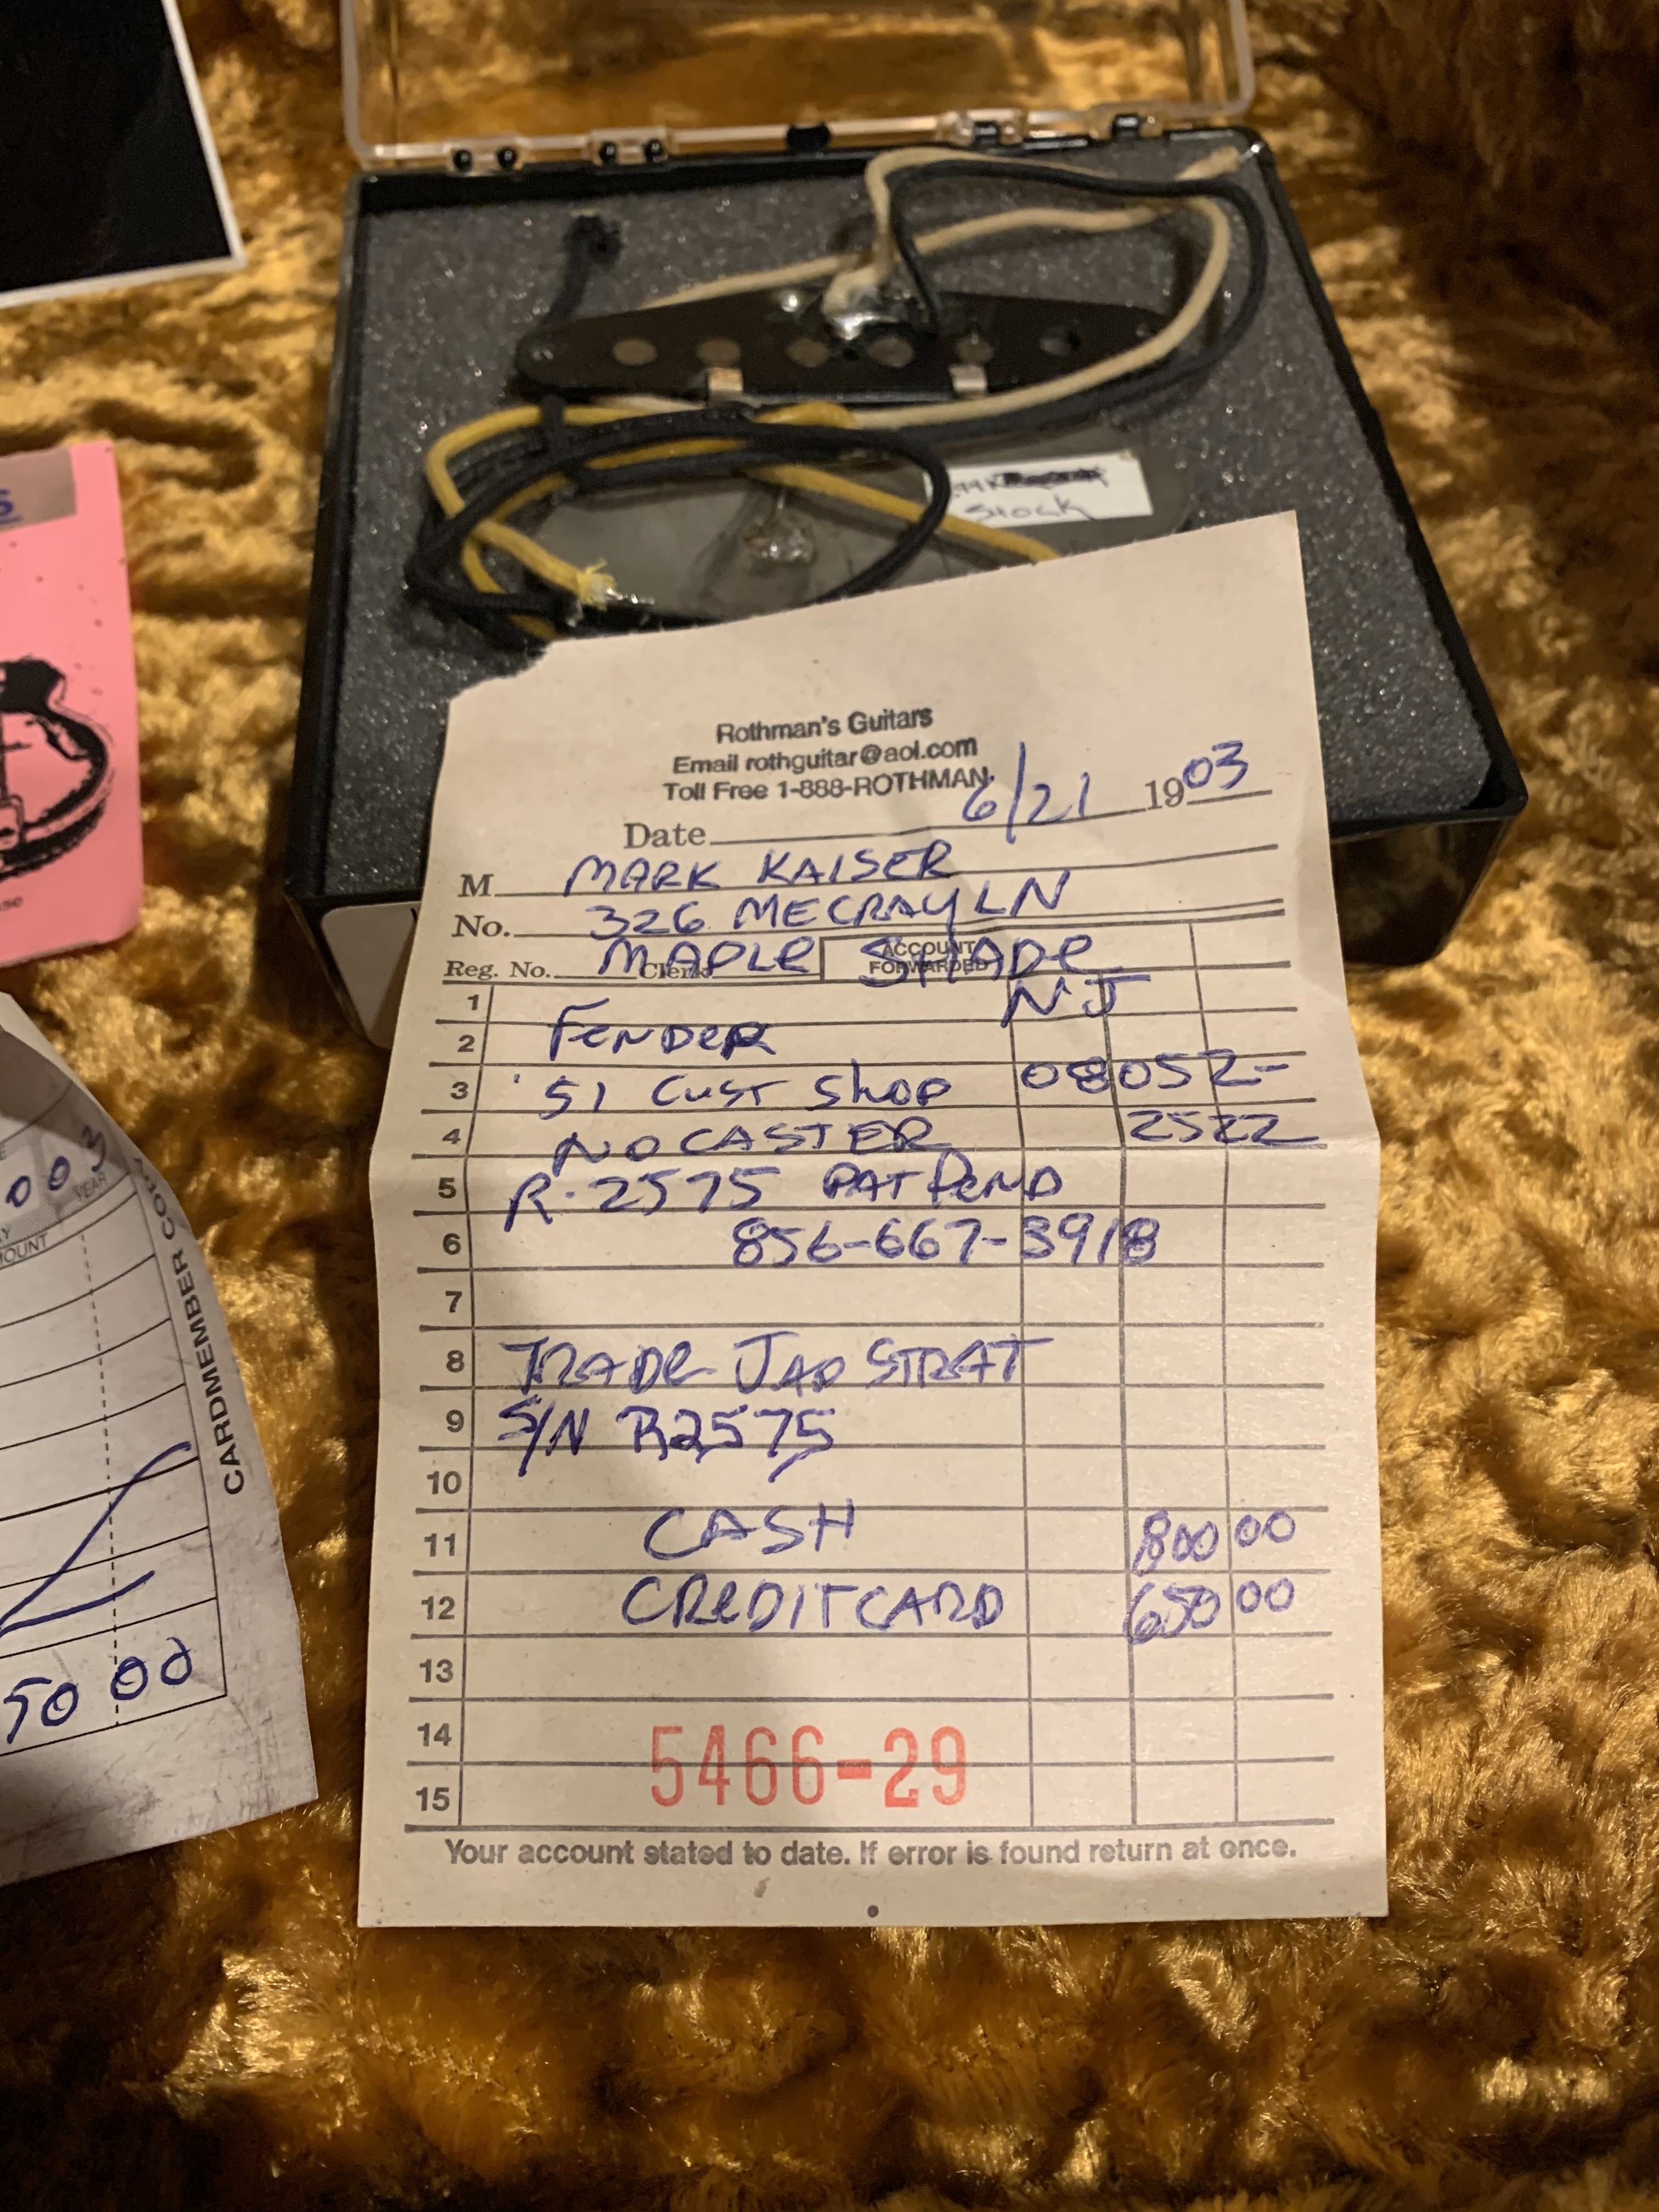 Stock
Rothman's Guitars
Email rothguitar@aol.com
Toll Free 1-888-ROTHMAN
Date 6/21 1903
M MARK KAISER
No. 326 MECRAY LN
Reg. No. Clerk ACCOUNT FORWARDED
MAPLE SHADE
NJ
1
2 FENDER
3 '51 CUST SHOP 08052-
4 NOCASTER 2522
5 R-2575 PAT PEND
6 856-667-3918
7
8 TRADE JAP STRAT
9 S/N R2575
10
11 CASH 800 00
12 CREDITCARD 650 00
13
14
5466-29
15
Your account stated to date. If error is found return at once.
S
50
003
YEAR
MOUNT
CARDMEMBER COPY
50 00